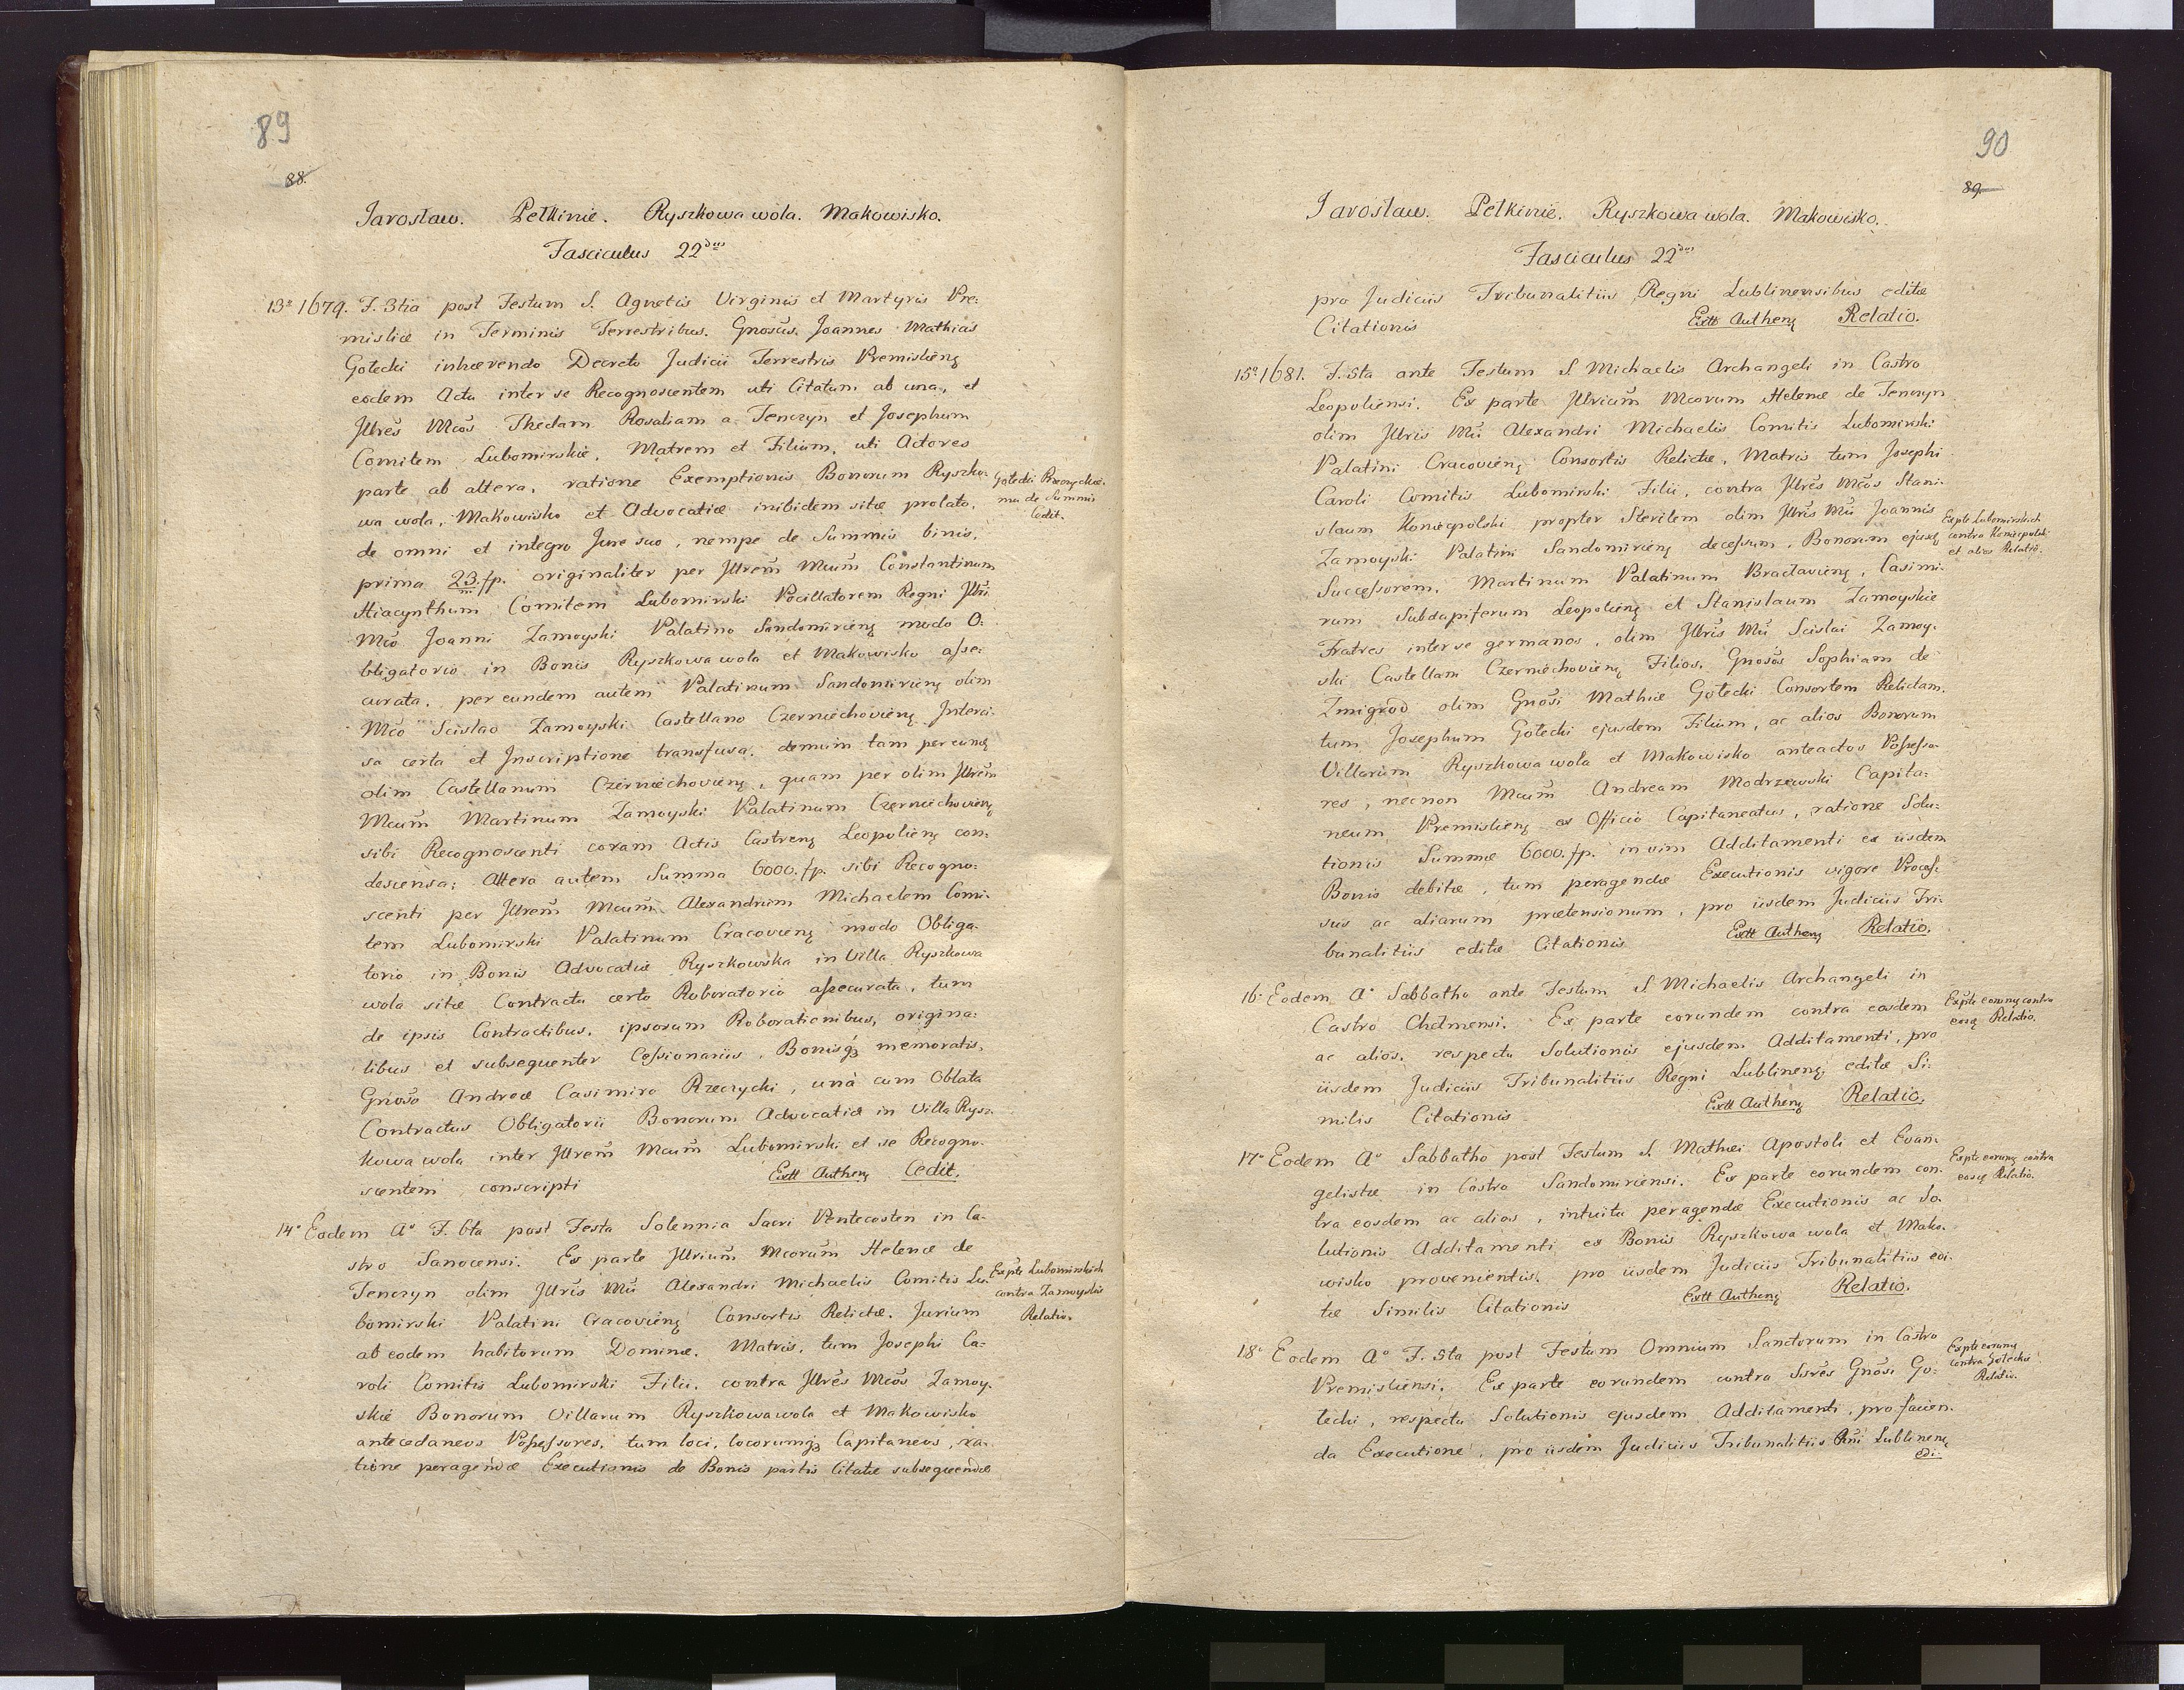 89
88.
Jarosław. Pełkinie. Ryszkowa wola. Makowisko.
Fasciculus 22dus
13º 1679. F. 3tia post Festum S. Agnetis Virginis et Martyris Pre:
misliæ in Terminis Terrestribus. Gnosus Joannes Mathias
Gołecki inhærendo Decreto Judicii Terrestris Premislieng
eodem Actu inter se Recognoscentem uti Citatum ab una, et
Jllres Mcos Thedam Rosaliam a Tenczyn et Josephum
Comitem Lubomirskie, Matrem et Filium, uti Actores
parte ab altera, ratione Exemptionis Bonorum Ryszko:
wa wola, Makowisko et Advocatiæ inibidem sitæ prolato,
de omni et integro Jure suo, nempe de Summis binis,
prima 23.m fp. originaliter per Jllrem Mcum Constantinum
Hiacynthum Comitem Lubomirski Pocillatorem Regni Jllri
Mco Joanni Zamoyski Palatino Sandomirieng modo O:
bligatorio in Bonis Ryszkowa wola et Makowisko asse:
curata, per eundem autem Palatinum Sandomirieng olim
Mco Scislao Zamoyski Castellano Czerniechovieng Interci:
sa certa et Inscriptione transfusa, demum tam per eung
olim Castellanum Czerniechovieng, quam per olim Jllrem
Mcum Martinum Zamoyski Palatinum Czerniechovieng
sibi Recognoscenti coram Actis Castreng Leopolieng con:
descensa; Altera autem Summa 6000. fp. sibi Recogno:
scenti per Jllrem Mcum Alexandrum Michaelem Comi:
tem Lubomirski Palatinum Cracovieng modo Obliga:
torio in Bonis Advocatiæ Ryszkowska in Villa Ryszkowa
wola sitæ Contractu certo Roboratorio assecurata, tum
de ipsis Contractibus, ipsorum Roborationibus, origina:
libus et subsequenter Cessionariis, Bonisqz memoratis,
Gnoso Andreæ Casimiro Rzeczycki, unà cum Oblata
Contractus Obligatorii Bonorum Advocatiæ in Villa Rysz:
kowa wola inter Jllrem Mcum Lubomirski et se Recogno:
scentem conscripti Extt Autheng Cedit.
Gołecki Rzeczyckie:
mu de Summis
Cedit.
14º Eodem Aº F. 6ta post Festa Solennia Sacri Pentecosten in Ca:
stro Sanocensi. Ex parte Jllrium Mcorum Helenæ de
Tenczyn olim Jllris Mci Alexandri Michaelis Comitis Lu:
bomirski Palatini Cracovieng Consortis Relictæ, Jurium
ab eodem habitorum Dominæ, Matris, tum Josephi Ca:
roli Comitis Lubomirski Filii, contra Jllres Mcos Zamoy:
skie Bonorum Villarum Ryszkowa wola et Makowisko
antecedaneos Possessores, tum loci, locorumqz Capitaneos, ra:
tione peragendæ Executionis de Bonis partis Citatæ subsequendæ
Ex pte Lubomirskich
contra Zamoyskie
Relatio.
90
89.
Jarosław. Pełkinie. Ryszkowa wola. Makowisko.
Fasciculus 22dus
pro Judiciis Tribunalitiis Regni Lublinensibus editæ
Citationis Extt Autheng Relatio.
15º 1681. F. 5ta ante Festum S. Michaelis Archangeli in Castro
Leopoliensi. Ex parte Jllrium Mcorum Helenæ de Tenczyn
olim Jllris Mci Alexandri Michaelis Comitis Lubomirski
Palatini Cracovieng Consortis Relictæ, Matris tum Josephi
Caroli Comitis Lubomirski Filii, contra Jllres Mcos Stani:
slaum Koniecpolski propter Sterilem olim Jllris Mci Joannis
Zamoyski Palatini Sandomirieng decessum, Bonorum ejusg
Successorem, Martinum Palatinum Bracłavieng, Casimi:
rum Subdapiferum Leopolieng et Stanislaum Zamoyskie
Fratres inter se germanos, olim Jllris Mci Scislai Zamoy:
ski Castellani Czerniechovieng Filios, Gnosos Sophiam de
Zmigrod olim Gnosi Mathiæ Gołecki Consortem Relictam,
tum Josephum Gołecki ejusdem Filium, ac alios Bonorum
Villarum Ryszkowa wola et Makowisko anteactos Possesso:
res, necnon Mcum Andream Modrzewski Capita:
neum Premislieng ex Officio Capitaneatus, ratione Solu:
tionis Summæ 6000. fp. in vim Additamenti ex iisdem
Bonis debitæ, tum peragendæ Executionis vigore Proces:
sus ac aliarum prætensionum, pro iisdem Judiciis Tri:
bunalitiis editæ Citationis Extt Autheng Relatio.
Ex pte Lubomirskich
contra Koniecpolski
et alios Relatio.
16º Eodem Aº Sabbatho ante Festum S. Michaelis Archangeli in
Castro Chełmensi. Ex parte eorundem contra eosdem
ac alios, respectu Solutionis ejusdem Additamenti, pro
iisdem Judiciis Tribunalitiis Regni Lublineng editæ Si:
milis Citationis Extt Autheng Relatio.
Ex pte eorung contra
eosg Relatio.
17º Eodem Aº Sabbatho post Festum S. Mathæi Apostoli et Evan:
gelistæ in Castro Sandomiriensi. Ex parte eorundem con:
tra eosdem ac alios, intuitu peragendæ Executionis ac So:
lutionis Additamenti ex Bonis Ryszkowa wola et Mako:
wisko provenientis, pro iisdem Judiciis Tribunalitiis edi:
tæ Similis Citationis Extt Autheng Relatio.
Ex pte eorung contra
eosg Relatio.
18º Eodem Aº F. 5ta post Festum Omnium Sanctorum in Castro
Premisliensi. Ex parte eorundem contra Ssres Gnosi Go:
łecki, respectu Solutionis ejusdem Additamenti, pro facien:
da Executione, pro iisdem Judiciis Tribunalitiis Rni Lublineng
edi:
Ex pte eorung
contra Gołeckie
Relatio.